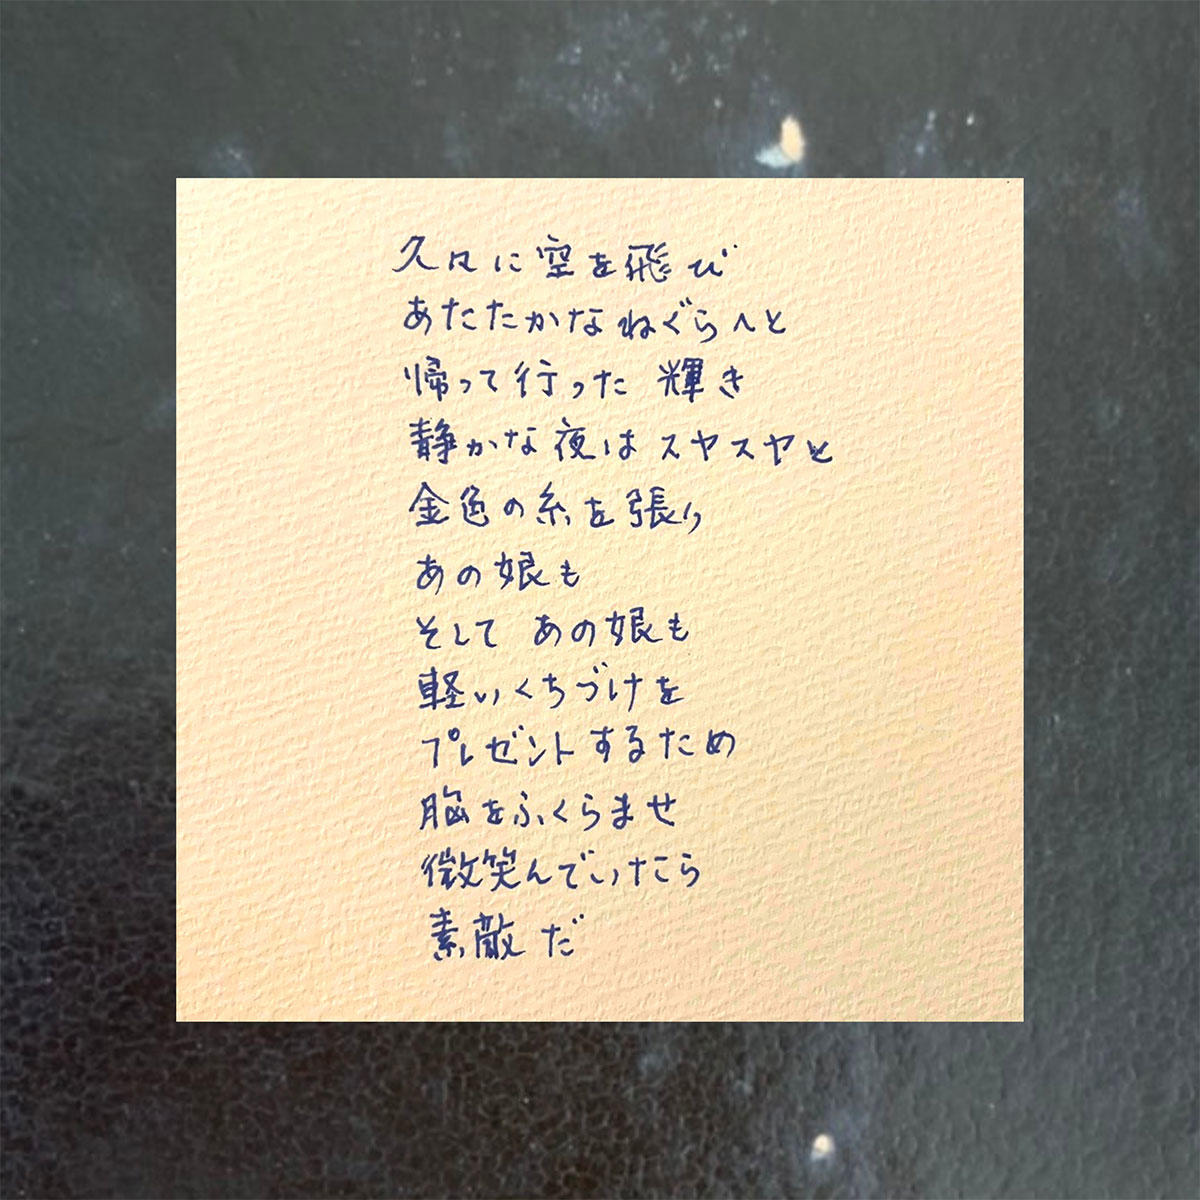 久々に空を飛び
あたたかなねぐらへと
帰って行った 輝き
静かな夜は スヤスヤと
金色の糸を張り
あの娘も
そして あの娘も
軽いくちづけを
プレゼントするため
胸をふくらませ
微笑んでいたら
素敵だ